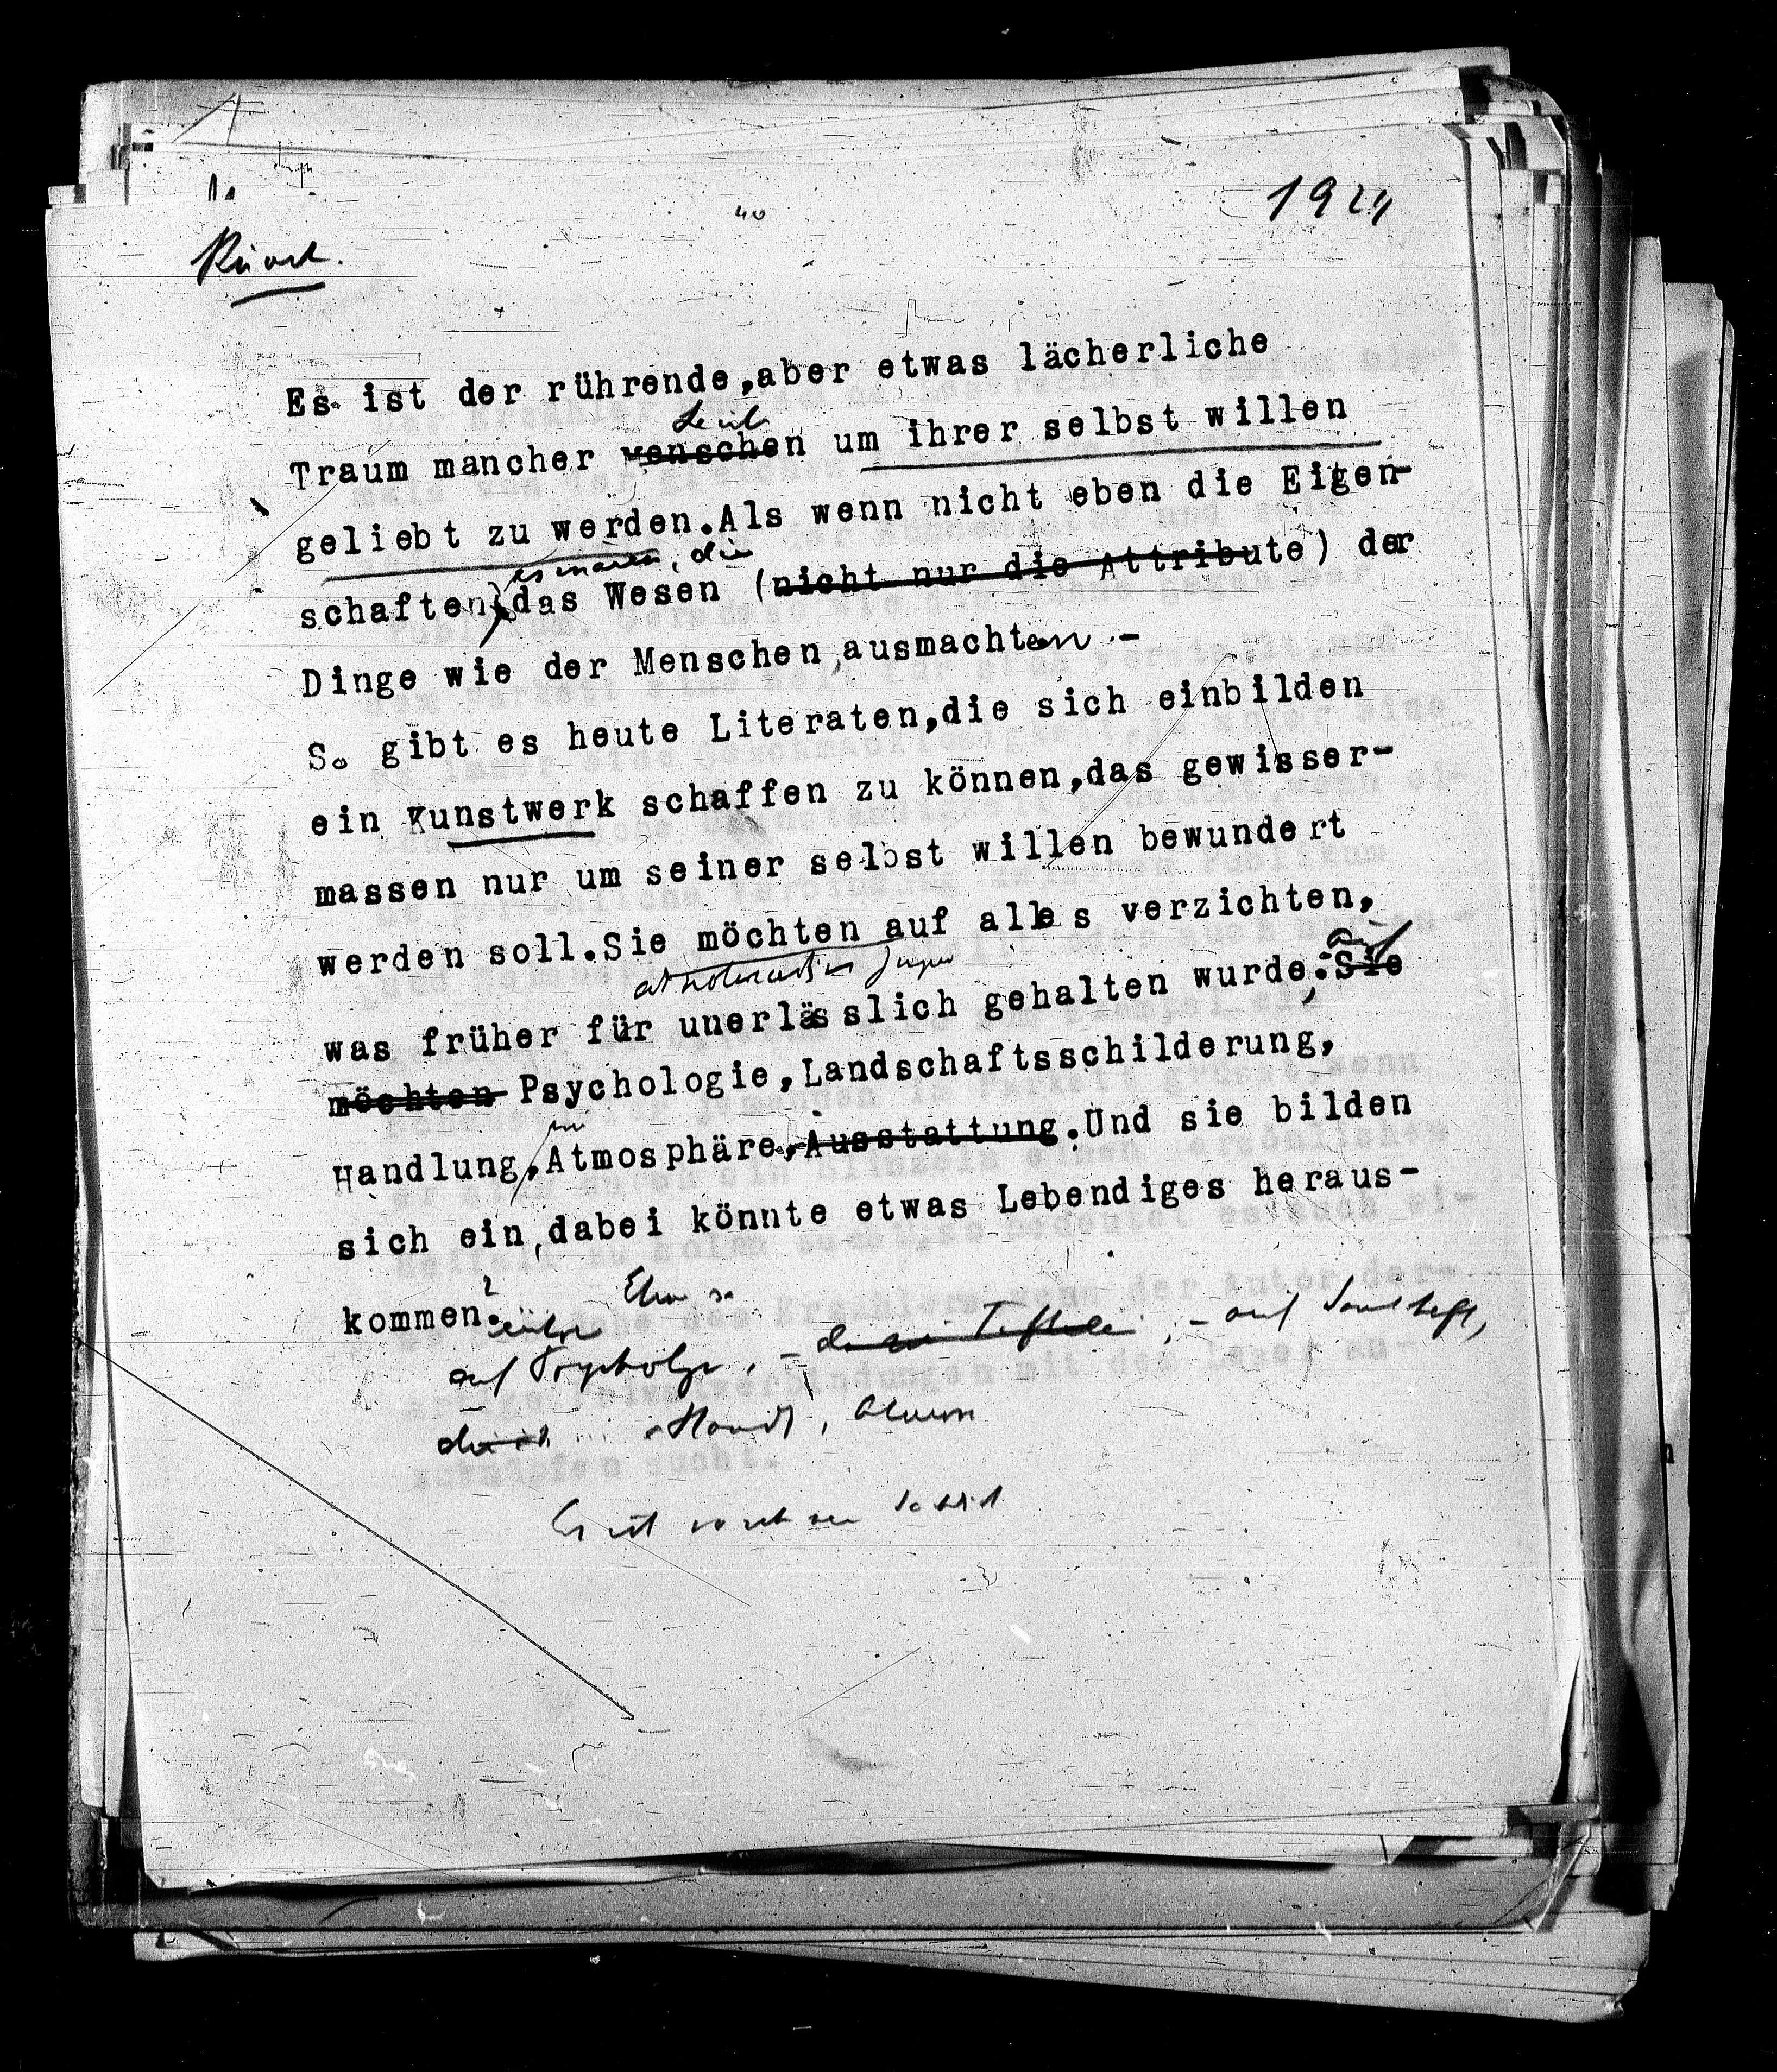 40
1924
Es ist der rührende,aber etwas lächerliche
Leute
Traum mancher menschen um ihrer selbst willen
geliebt zu werden.Als wenn nicht eben die Eigen-
es wären, die
schaften das Wesen (nicht nur die Attribute) der
Dinge wie der Menschen,ausmachten -
So gibt es heute Literaten,die sich einbilden
ein Kunstwerk schaffen zu können,das gewisser-
massen nur um seiner selbst willen bewundert
werden soll.Sie möchten auf alles verzichten,
auf
was früher für unerlässlich gehalten wurde.Sie
möchten Psychologie,Landschaftsschilderung,
Handlung,Atmosphäre,Ausstattung.Und sie bilden
sich ein,dabei könnte etwas Lebendiges heraus-
kommen?
auf auf